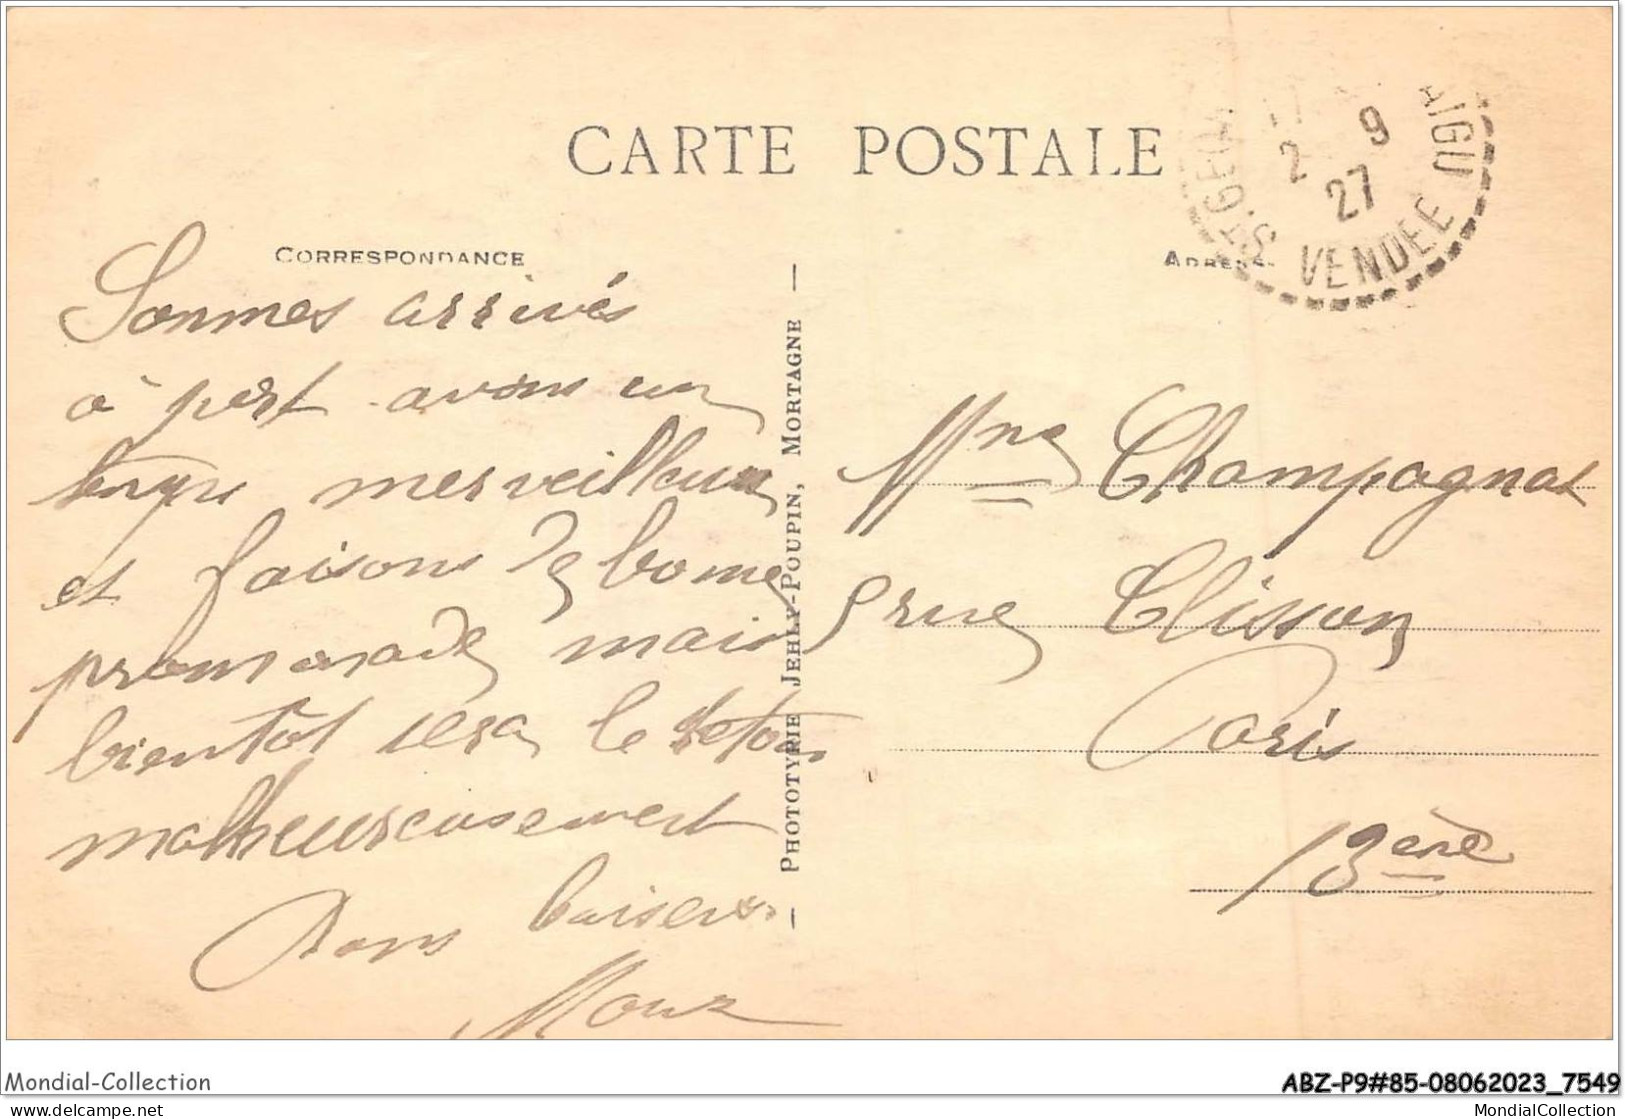 CARTE POSTALE
17
2 9
27
ST GE
VENDEE
AIGU
CORRESPONDANCE
ADRESSE
Sommes arrivés
à port avons un
temps merveilleux
et faisons de bonne
promenade mais
bientôt sera le retour
malheureusement
Bons baisers
PHOTOTYPIE JEHLY-POUPIN, MORTAGNE
Mme Champagnat
9 rue Clisson
Paris
13ème
Mondial-Collection
ABZ-P9#85-08062023_7549
delcampe.net
MondialCollection